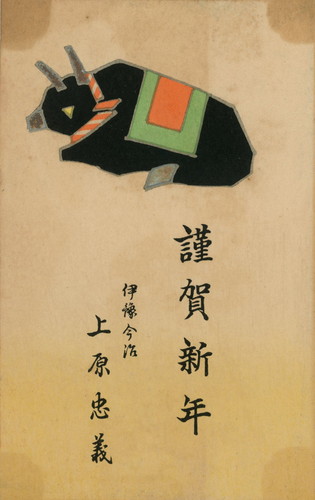 謹賀新年
伊豫今治
上原忠義